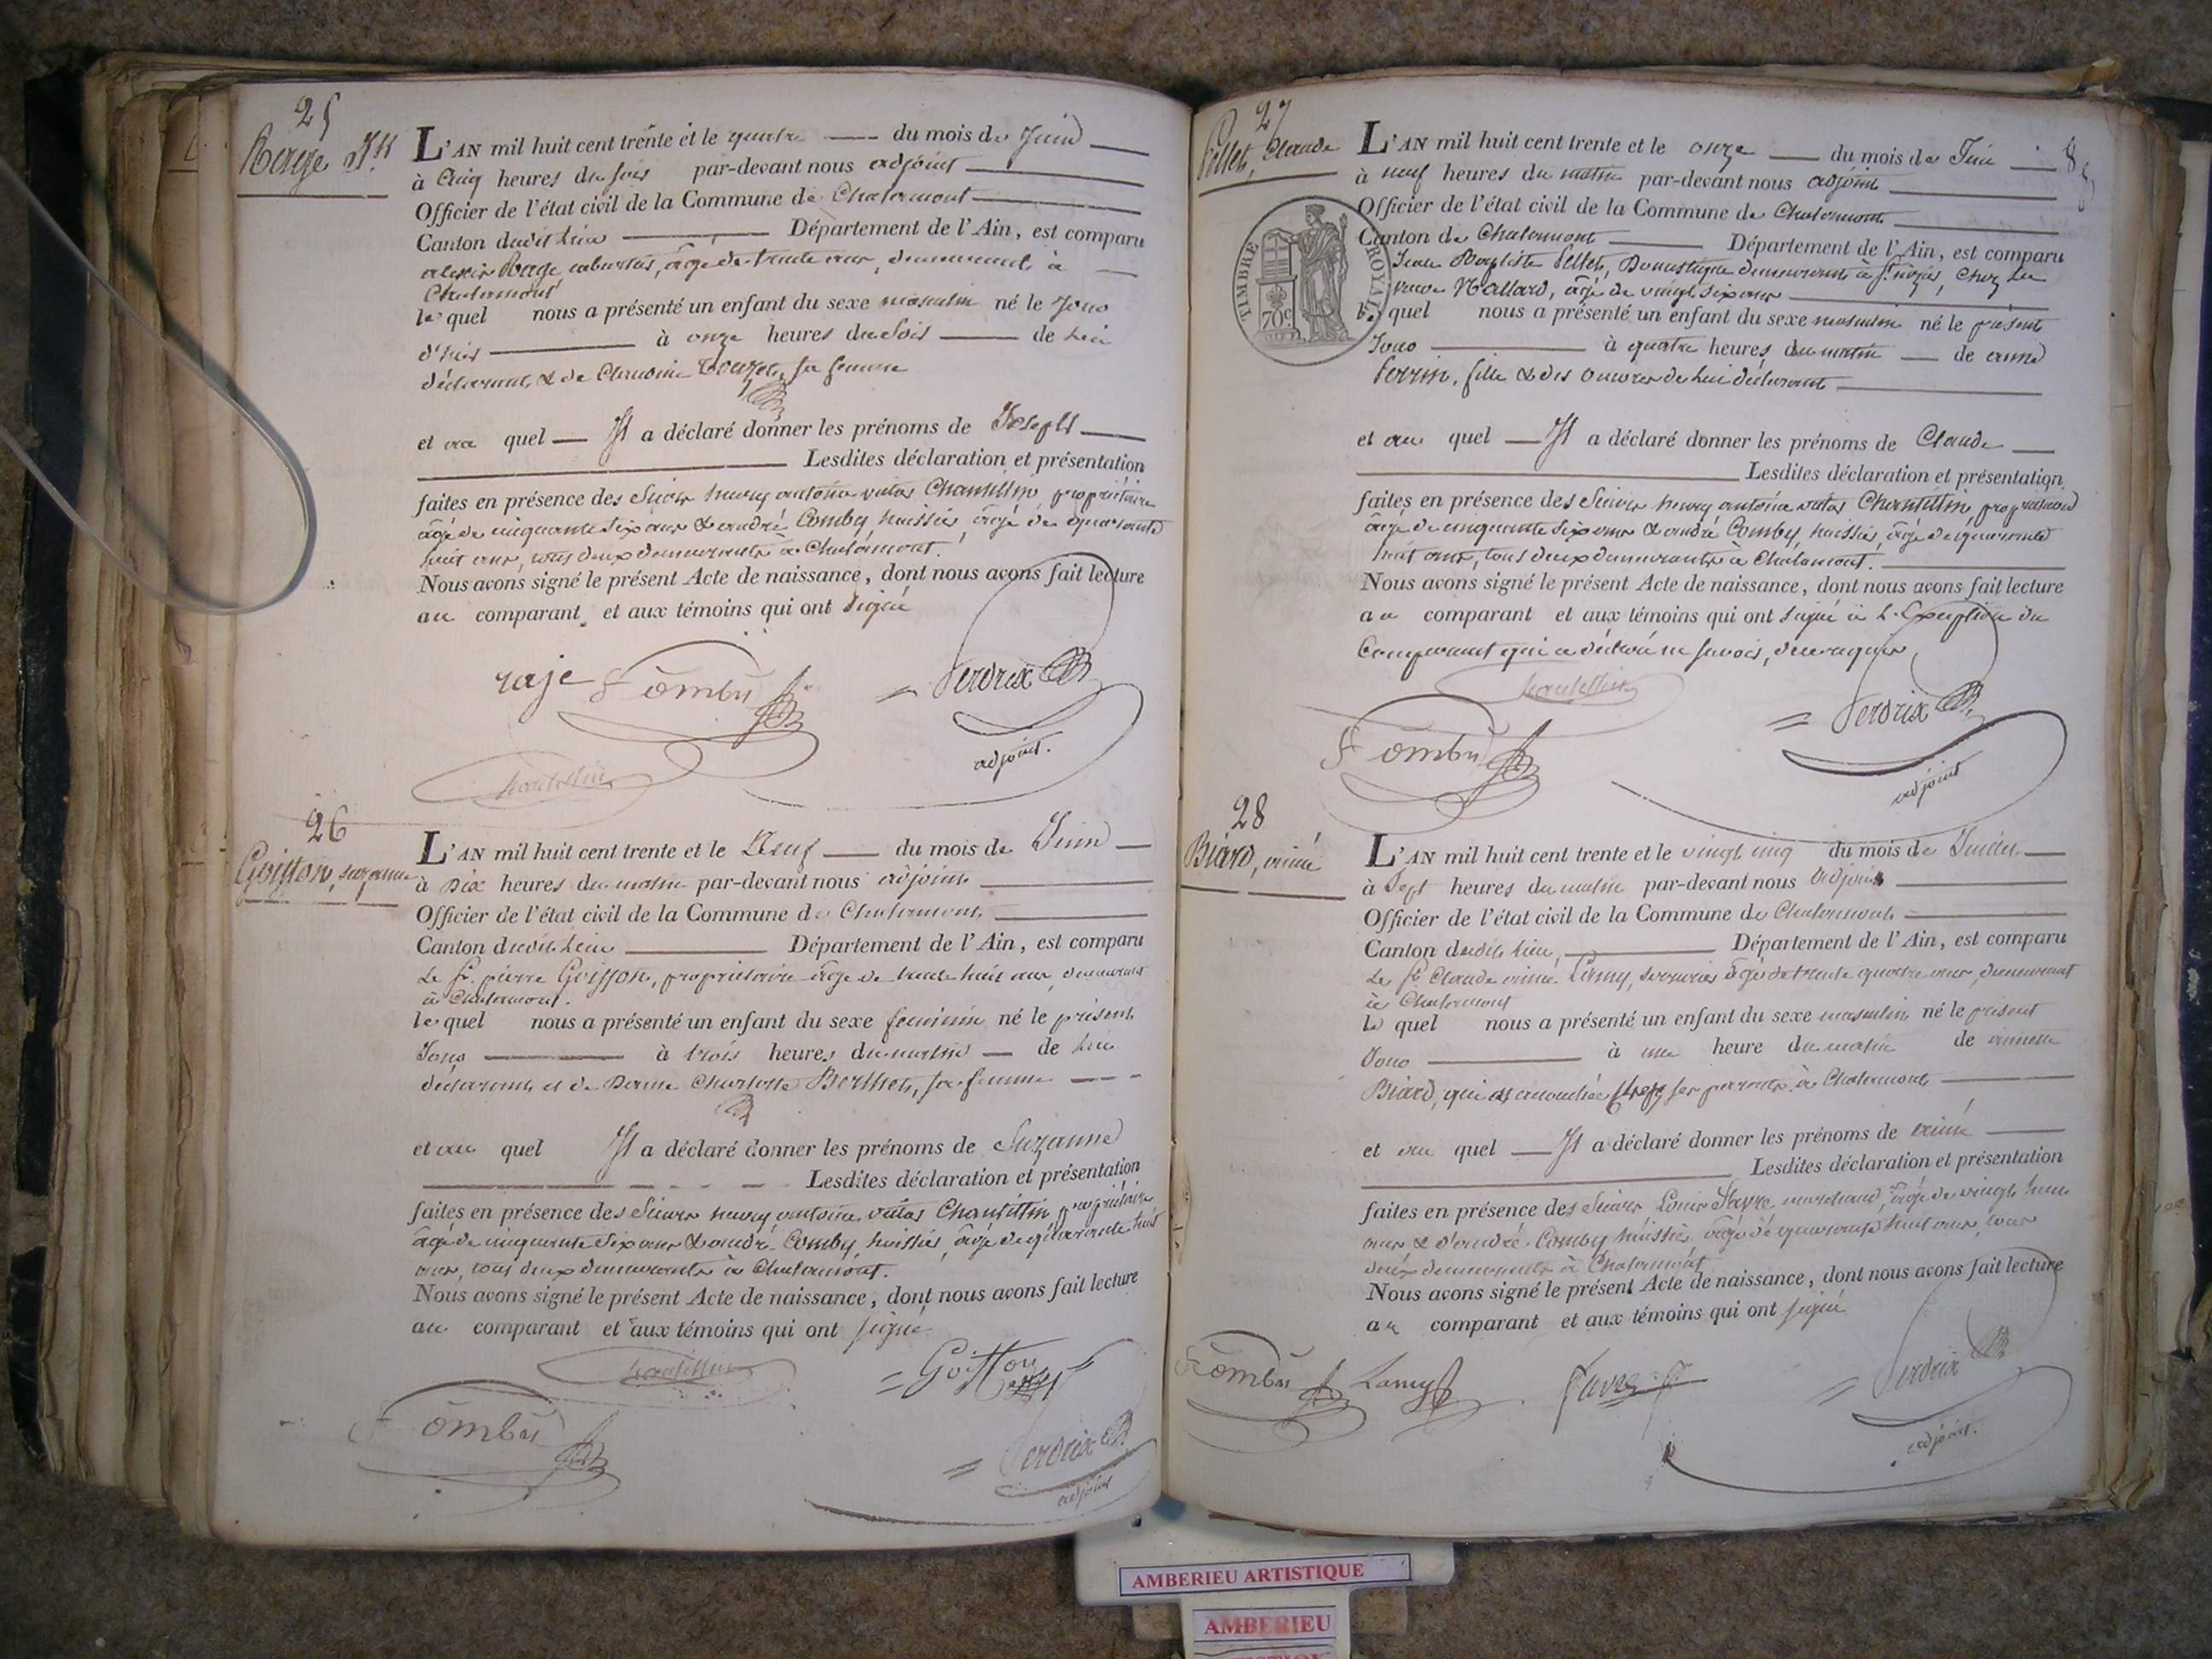 25
Rage J.h
L'AN mil huit cent trente et le quatre du mois de Juin
à Cinq heures du soir par-devant nous adjoint
Officier de l'état civil de la Commune de Chalamont
Canton dudit lieu Département de l'Ain, est comparu
alexis Rage cabartier, âgé de trente ans, demeurant à
Chalamont
lequel nous a présenté un enfant du sexe masculin né le Jour
d'hier à onze heures du Soir de lui
déclarant, & de Claudine sa femme
et au quel Il a déclaré donner les prénoms de Joseph
Lesdites déclaration et présentation
faites en présence des Sieurs henry antoine vatas Chantillin, propriétaire
âgé de cinquante six ans & andré Comby huissier, âgé de quarante
huit ans, tous deux demeurants à Chalamont.
Nous avons signé le présent Acte de naissance, dont nous avons fait lecture
au comparant et aux témoins qui ont signé
raje Comby Perdrix
adjoint.
26
Goiffon, suzanne
L'AN mil huit cent trente et le Neuf du mois de Juin
à Dix heures du matin par-devant nous adjoint
Officier de l'état civil de la Commune de Chalamont
Canton dudit lieu Département de l'Ain, est comparu
Le Sr. pierre Goiffon, propriétaire âgé de trente huit ans, demeurant
à Chalamont.
lequel nous a présenté un enfant du sexe feminin né le présent
Jour à trois heures du matin de lui
déclarant et de Dame Charlotte Berthet, sa femme
et au quel Il a déclaré donner les prénoms de Suzanne
Lesdites déclaration et présentation
faites en présence des Sieurs henry antoine vatas Chantillin, propriétaire
âgé de cinquante six ans & andré Comby, huissier, âgé de quarante huit
ans, tous deux demeurants à Chalamont.
Nous avons signé le présent Acte de naissance, dont nous avons fait lecture
au comparant et aux témoins qui ont signé
Goiffon
Comby
Perdrix
adjoint
27
Pellet, Claude
L'AN mil huit cent trente et le onze du mois de Juin
à neuf heures du matin par-devant nous adjoint
Officier de l'état civil de la Commune de Chalamont
Canton de Chalamont Département de l'Ain, est comparu
TIMBRE ROYAL
70c
Jean Baptiste Pellet, Domestique demeurant à St. nizier, chez la
veuve Mallard, âgé de vingt six ans
lequel nous a présenté un enfant du sexe masculin né le présent
Jour à quatre heures du matin de
Perrin, fille & des œuvres de lui déclarant
et au quel Il a déclaré donner les prénoms de Claude
Lesdites déclaration et présentation
faites en présence des Sieurs henry antoine vatas Chantillin, propriétaire
âgé de cinquante six ans & andré Comby, huissier, âgé de quarante
huit ans, tous deux demeurants à Chalamont.
Nous avons signé le présent Acte de naissance, dont nous avons fait lecture
au comparant et aux témoins qui ont signé à l'Exception du
Comparant qui a déclaré ne savoir, de ce requis
Comby Perdrix
adjoint
28
Biard, aimé
L'AN mil huit cent trente et le vingt cinq du mois de Juillet
à Sept heures du matin par-devant nous adjoint
Officier de l'état civil de la Commune de Chalamont
Canton dudit lieu, Département de l'Ain, est comparu
Le Sr. Claude aimé Lamy, serrurier âgé de trente quatre ans, demeurant
à Chalamont
lequel nous a présenté un enfant du sexe masculin né le présent
Jour à une heure du matin de
Biard, qui est accouchée chez ses parents à Chalamont
et au quel Il a déclaré donner les prénoms de aimé
Lesdites déclaration et présentation
faites en présence des Sieurs Louis Favre, marchand, âgé de vingt
ans & d'andré Comby huissier âgé de quarante huit ans, tous
deux demeurants à Chalamont
Nous avons signé le présent Acte de naissance, dont nous avons fait lecture
au comparant et aux témoins qui ont signé
Comby Lamy Favre Perdrix
adjoint.
AMBERIEU ARTISTIQUE
AMBERIEU